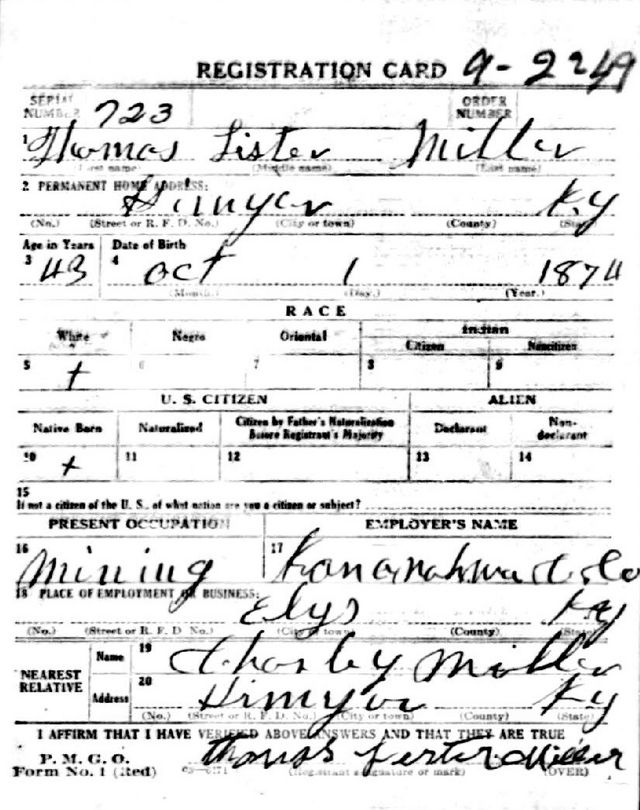 REGISTRATION CARD 9-2249
SERIAL NUMBER 723 ORDER NUMBER
1 Thomas Lister Miller
(First name) (Middle name) (Last name)
2 PERMANENT HOME ADDRESS:
Himyar Ky
(No.) (Street or R. F. D. No.) (City or town) (County) (State)
Age in Years Date of Birth
3 43 4 Oct 1 1874
(Month.) (Day.) (Year.)
RACE
White Negro Oriental Indian
Citizen Noncitizen
5 + 6 7 8 9
U. S. CITIZEN ALIEN
Native Born Naturalized Citizen by Father's Naturalization Before Registrant's Majority Declarant Non-declarant
10 + 11 12 13 14
15
If not a citizen of the U. S., of what nation are you a citizen or subject?
PRESENT OCCUPATION EMPLOYER'S NAME
16 Mining 17 Co
18 PLACE OF EMPLOYMENT OR BUSINESS:
Elys Ky
(No.) (Street or R. F. D No.) (City or town) (County) (State)
NEAREST RELATIVE Name 19 Charley Miller
Address 20 Himyar Ky
(No.) (Street or R. F. D. No.) (City or town) (County) (State)
I AFFIRM THAT I HAVE VERIFIED ABOVE ANSWERS AND THAT THEY ARE TRUE
P. M. G. O.
Form No. 1 (Red) Thomas Lester Miller
(Registrant's signature or mark) (OVER)